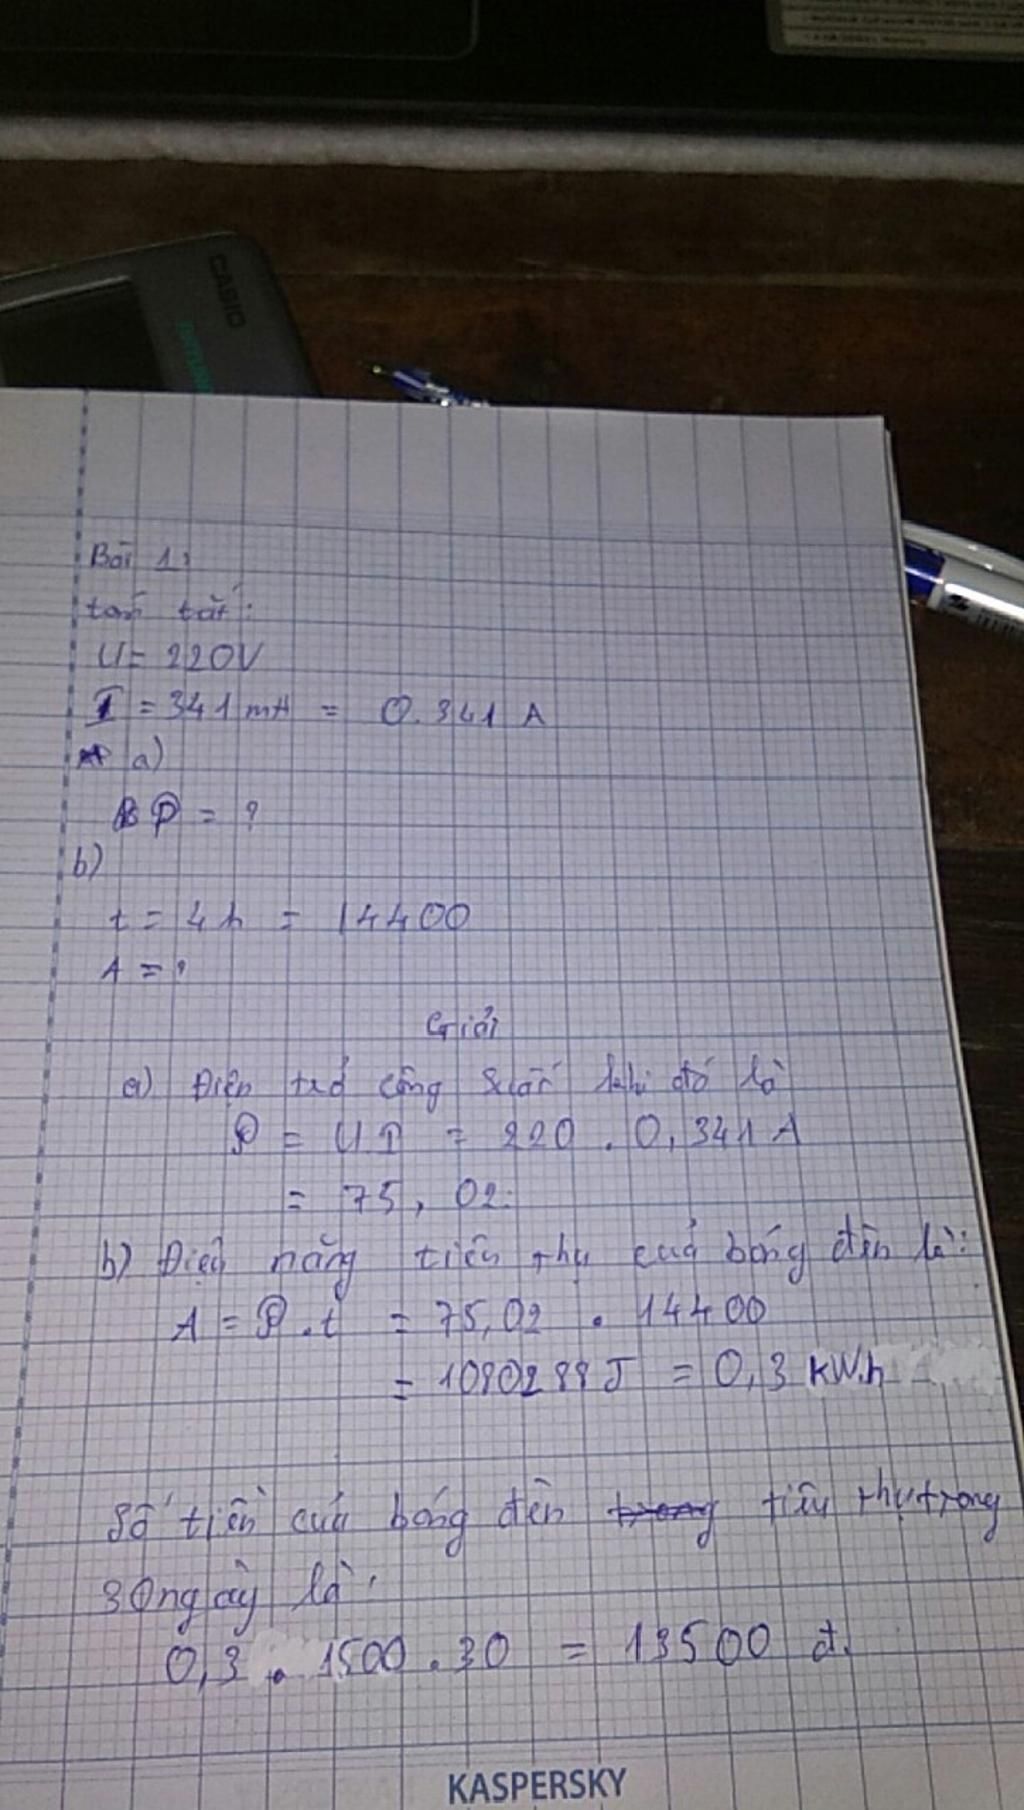 CASIO
Bài 1:
tóm tắt:
U = 220V
I = 341 mA = 0.341 A
a)
P = ?
b)
t = 4h = 14400
A = ?
Giải
a) Điện trở công suất khi đó là
P = UI = 220 . 0,341 A
= 75,02.
b) Điện năng tiêu thụ của bóng đèn là:
A = P.t = 75,02 . 14400
= 1080288 J = 0,3 kW.h
Số tiền của bóng đèn trong tiêu thụ trong
30 ngày là:
0,3 . 1500 . 30 = 13500 đ.
KASPERSKY